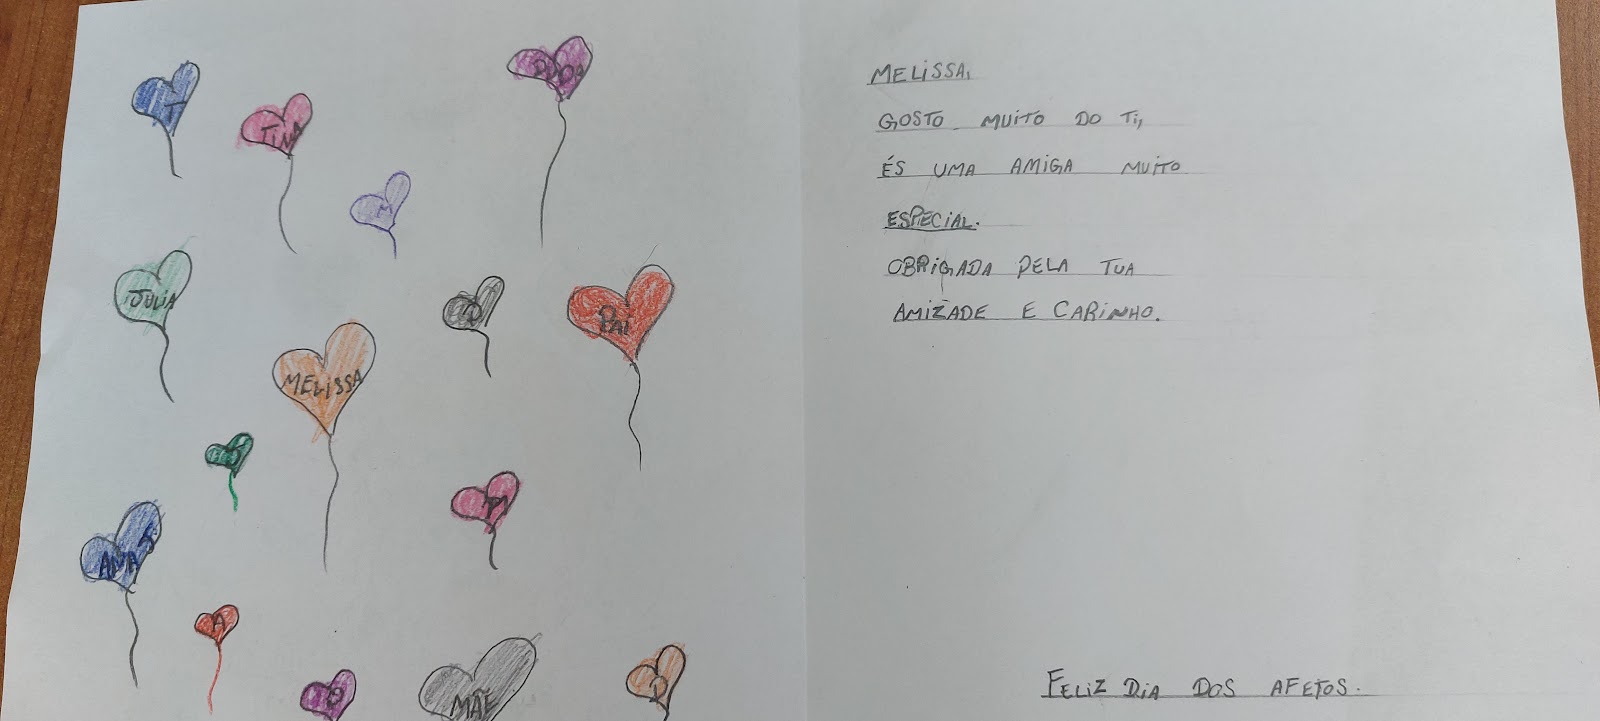 T
TINA
M
JULIA
MELISSA
PAI
ANA J
A
MÃE
D
MELISSA,
GOSTO MUITO DO TI,
ÉS UMA AMIGA MUITO
ESPECIAL.
OBRIGADA PELA TUA
AMIZADE E CARINHO.
FELIZ DIA DOS AFETOS.